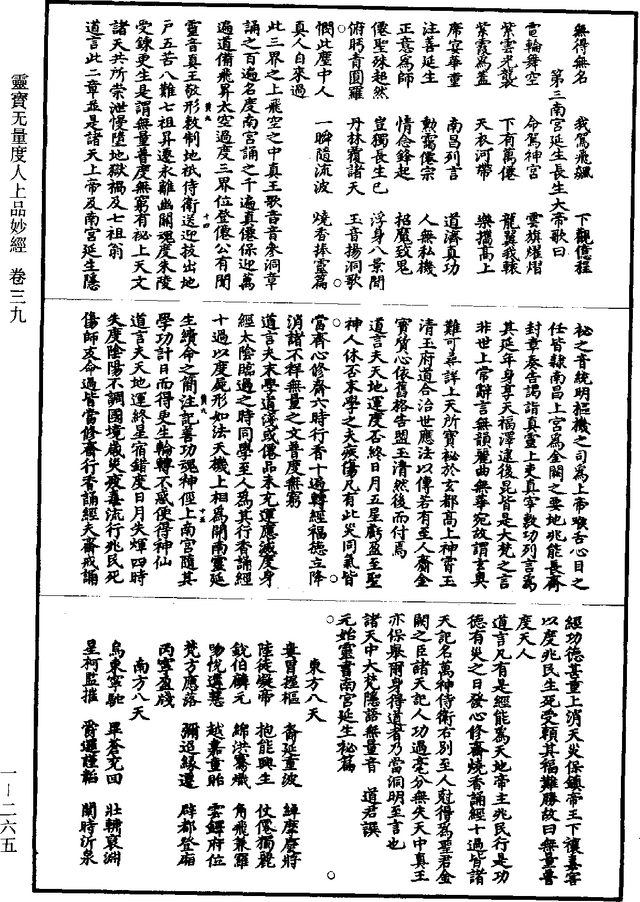 無得無名　我駕飛飆　下觀億程
第三南宮延生長生大帝歌曰
電輪舞空　命駕神宮　雲旗燿熠
紫雲光襲　下有萬僊　龍翼我轅
紫霞為蓋　天衣河帶　樂擋高上
席宴華堂　南昌列言　道濟真功
注善延生　勳霭僊宗　人無私機
正意為師　情念鋒起　招魔致鬼
僊聖殊超然　豈獨長生已　浮身八景間
俯眄青園羅　丹林覆諸天　玉音揚洞歌
憫此塵中人　一瞬隨流波　燒香捧靈篇
真人自來過
此三界之上飛空之中真王歌音音參洞章
誦之百遍名度南宮誦之千遍真僊保迎萬
遍道備飛昇太空過度三界位登僊公有聞
靈音真王敬形敕制地祇侍衛送迎拔出地
戶五苦八難七祖昇遷永離幽關魂度朱陵
受鍊更生是謂無量普度無窮有祕上天文
諸天共所崇泄慢墮地獄禍及七祖翁
道言此二章並是諸天上帝及南宮延生隱
祕之音統明樞機之司為上帝喉舌心目之
任皆隸南昌上宮為金闕之要地兆能長齋
封章奏告謁詣真靈上吏真宰敕功列言為
其延年身享天福澤逮後昆皆是大梵之言
非世上常辭言無韻麗曲無華宛故謂玄奧
難可尋詳上天所寶祕於玄都高上神霄玉
清玉府道合治世應法以傳若有至人齎金
寶質心依舊格告盟玉清然後而付焉
道言夫天地運度否終日月五星虧盈至聖
神人休否末學之夫疾傷凡有此災同氣皆
當齊心修齋六時行香十過轉經福德立降
消諸不祥無量之文普度無窮
道言夫末學道淺或僊品未充運應滅度身
經太陰臨過之時同學至人為其行香誦經
十過以度屍形如法天機上相為開南靈延
生續命之簡注記善功魂神徑上南宮隨其
學功計日而得更生輪轉不滅便得神仙
道言夫天地運終星宿錯度日月失煇四時
失度陰陽不調國境烖災疫毒流行兆民死
傷師友命過皆當修齋行香誦經夫齋戒誦
經功德甚重上消天災保鎮帝王下禳毒害
以度兆民生死受賴其福難勝故曰無量普
度天人
道言凡有是經能為天地帝主兆民行是功
德有災之日發心修齋燒香誦經十過皆諸
天記名萬神侍衛右別至人剋得為聖君金
闕之臣諸天記人功過毫分無失天中真王
亦保舉爾身得道者乃當洞明至言也
諸天中大梵隱語無量音　道君譔
元始靈書南宮延生祕篇
東方八天
婁胃握樞　裔延重波　綽歷慶將
陸徒礙帝　抱能興生　仗僊獨麗
銳伯麟元　綿洪騫熾　角飛兼羅
喻悅遷慧　越嘉重眙　雲鐸府位
梵方應落　彌迢緣遷　辟都登廟
丙寧盈殘
南方八天
烏東寧馳　畢蒼充回　壯轎哀淵
星柯監摧　爵遷謹韜　闡時沂泉
靈寶无量度人上品妙經　卷三九
一―二六五